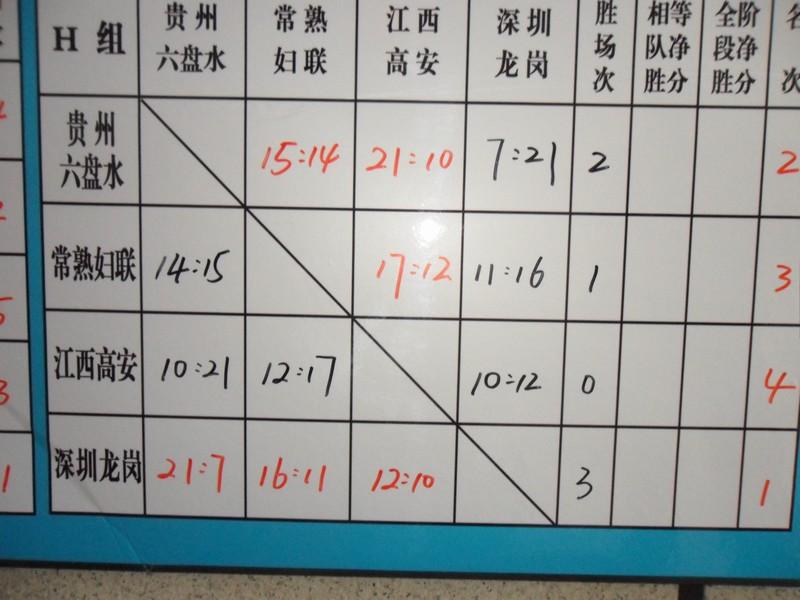 H 组
贵州
六盘水
常熟
妇联
江西
高安
深圳
龙岗
胜
场
次
相等
队净
胜分
全阶
段净
胜分
名
次
贵州
六盘水
15:14
21:10
7:21
2
2
常熟妇联
14:15
17:12
11:16
1
3
江西高安
10:21
12:17
10:12
0
4
深圳龙岗
21:7
16:11
12:10
3
1